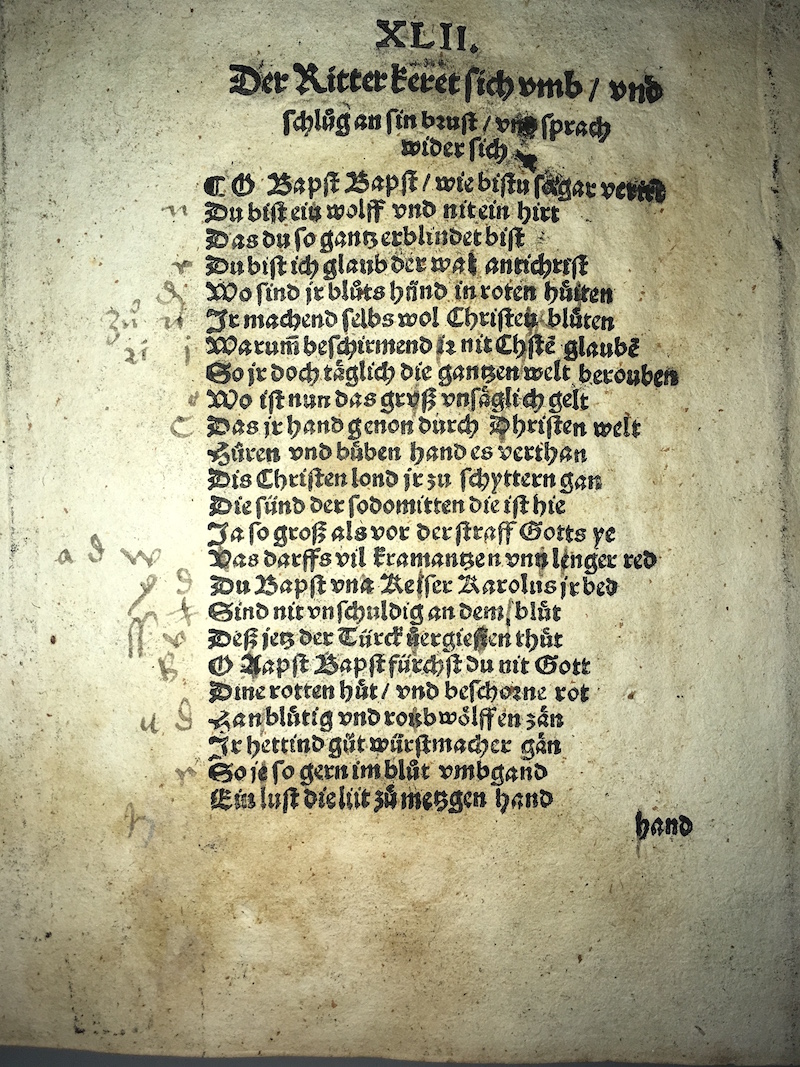 XLII.
Der Ritter keret sich vmb / vnd
schlůg an sin brust / vnd sprach
wider sich
¶ O Bapst Bapst / wie bistu so gar
Du bist ein wolff vnd nit ein hirt
Das du so gantz erblindet bist
Du bist ich glaub der war antichrist
Wo sind jr blůts hünd in roten hůten
Jr machend selbs wol Christen blůten
Warum̄ beschirmend jr nit Chstē glaubē
So jr doch täglich die gantzen welt berouben
Wo ist nun das groß vnsäglich gelt
Das jr hand genon durch Dhristen welt
Hůren vnd bůben hand es verthan
Dis Christen lond jr zu schyttern gan
Die sünd der sodomitten die ist hie
Ja so groß als vor der straff Gotts ye
Vas darffs vil kramantzen vnn lenger red
Du Bapst vnd Keiser Karolus jr bed
Sind nit vnschuldig an dem blůt
Deß jetz der Türck vergiessen thůt
O Aapst Bapst fürchst du nit Gott
Dine rotten hůt / vnd beschorne rot
Han blůtig vnd roubwölffen zän
Jr hettind gůt würstmacher gän
So je so gern im blůt vmbgand
Ein lust die lüt zů metzgen hand
hand